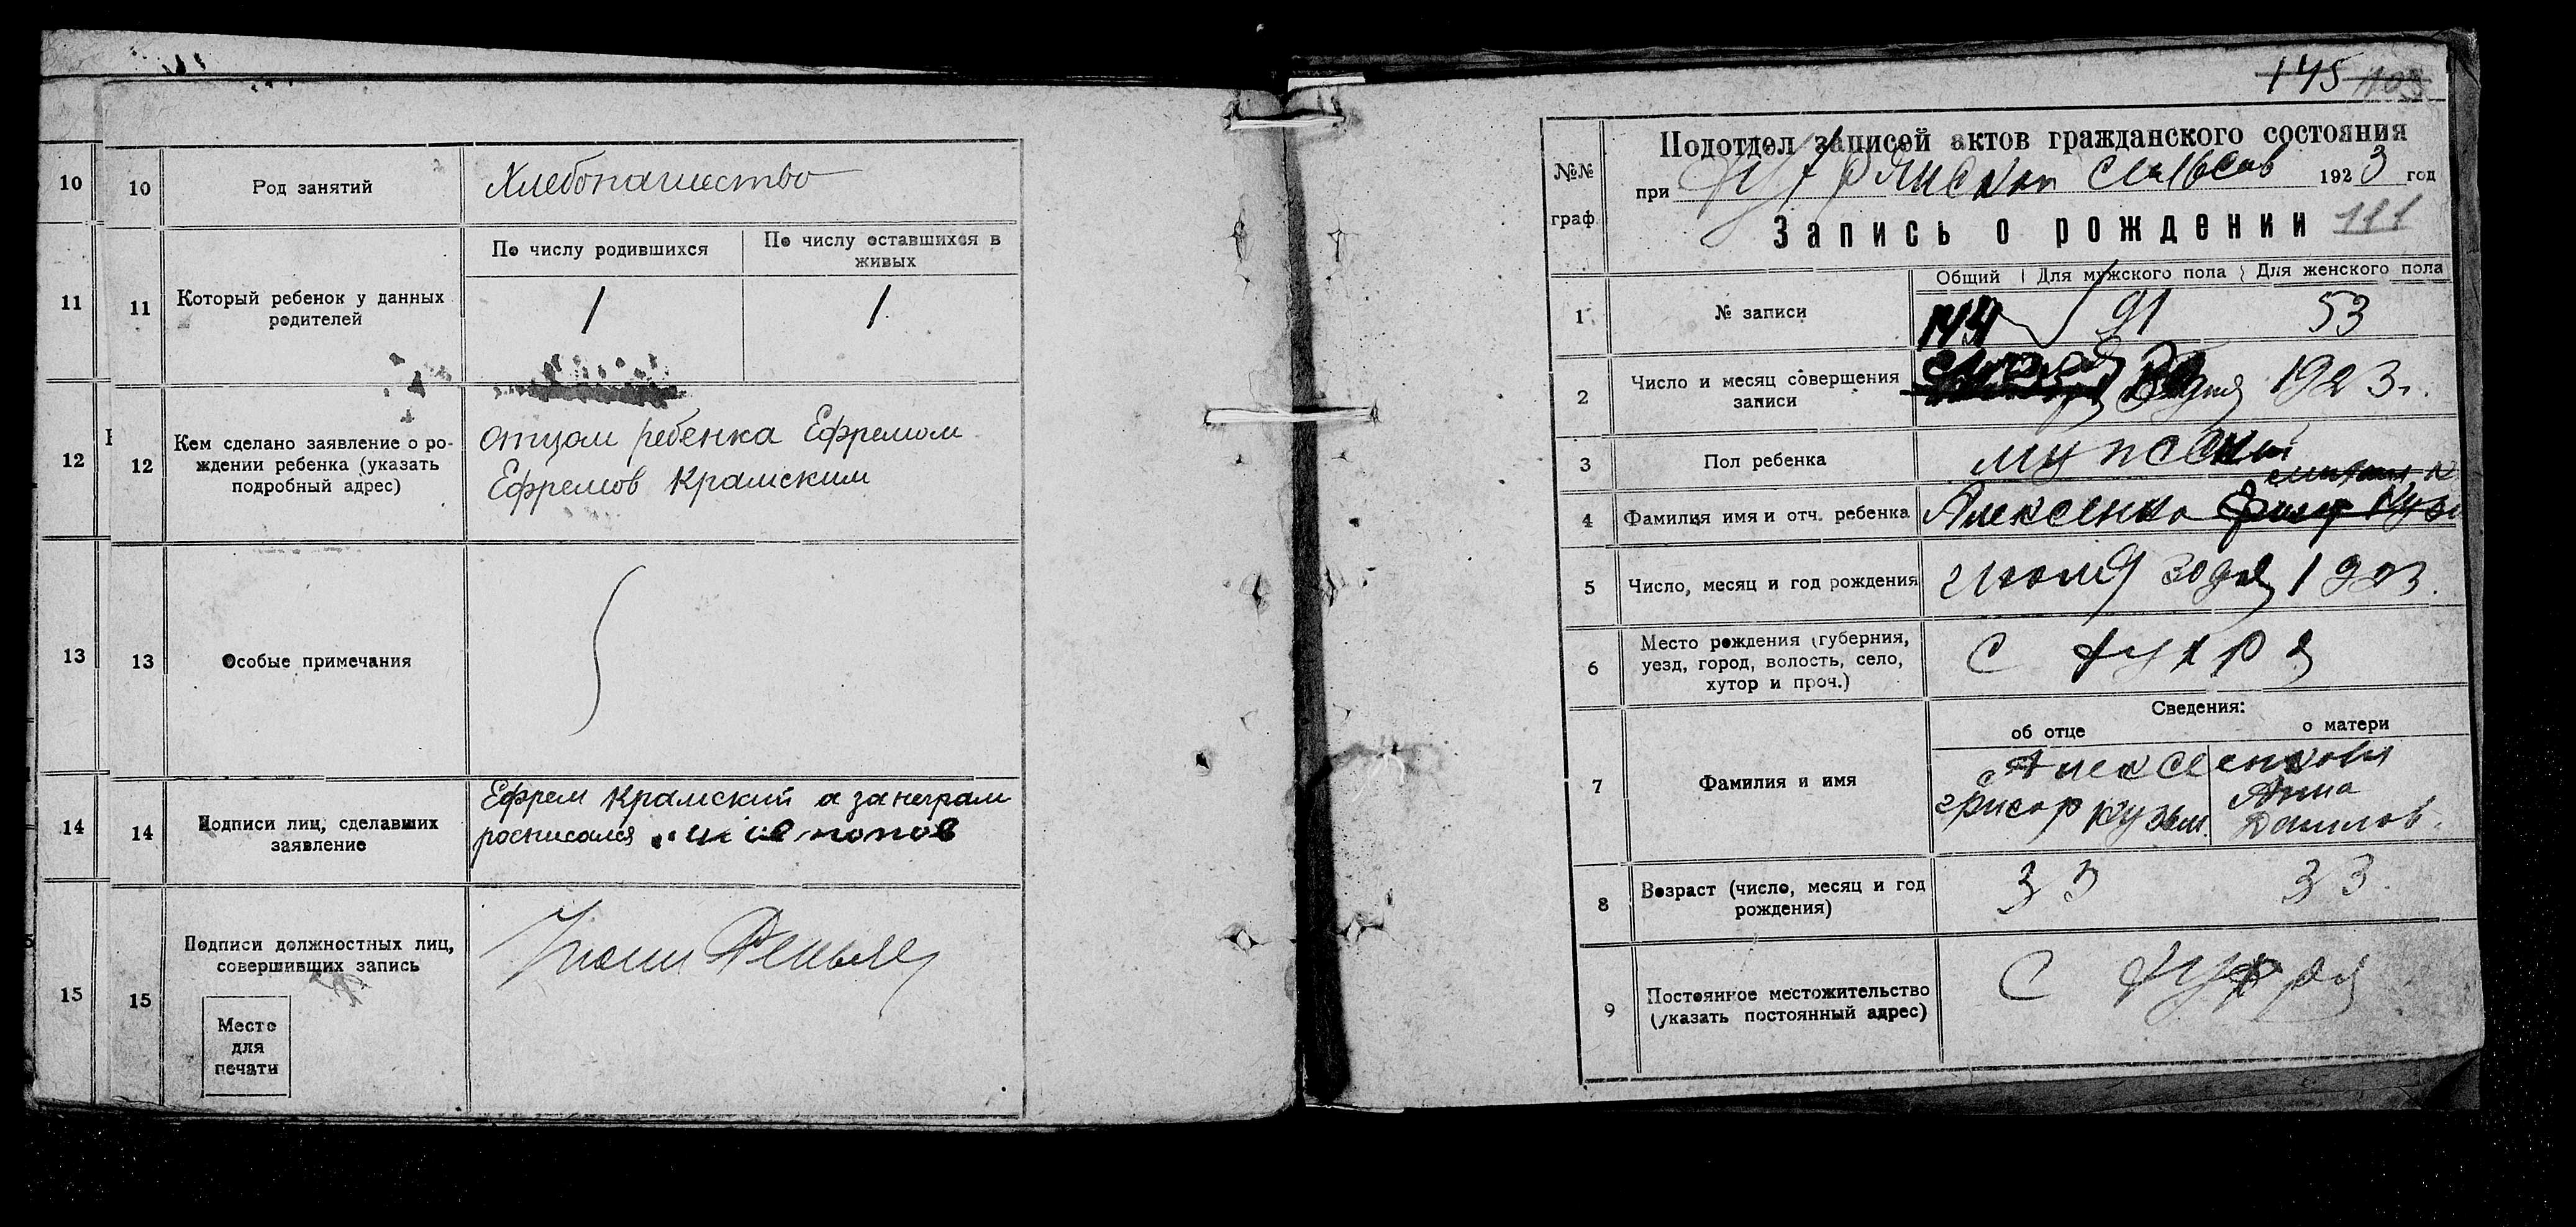 10 10 Род занятий Хлебопашество
По числу родившихся По числу оставшихся в
живых
11 11 Который ребенок у данных
родителей
1 1
12 12 Кем сделано заявление о ро-
ждении ребенка (указать
подробный адрес)
отцом ребенка Ефремом
Ефремов Крамским
13 13 Особые примечания
14 14 Подписи лиц, сделавших
заявление
Ефрем Крамский а за неграм
росписался попов
15 15 Подписи должностных лиц,
совершивших запись
Место
для
печати
145 103
№№
граф.
Подотдел записей актов гражданского состояния
при сельсов 1923 год
Запись о рождении 111
Общий Для мужского пола Для женского пола
1 № записи 144 91 53
2 Число и месяц совершения
записи
1923 г.
3 Пол ребенка мужский
4 Фамилия имя и отч. ребенка Алексенко
5 Число, месяц и год рождения июля 30 дня 1923.
6 Место рождения (губерния,
уезд, город, волость, село,
хутор и проч.)
С
Сведения:
об отце о матери
7 Фамилия и имя
Алексеенковы
Кузьм. Анна
Данилов.
8 Возраст (число, месяц и год
рождения)
33 33.
9 Постоянное местожительство
(указать постоянный адрес)
С